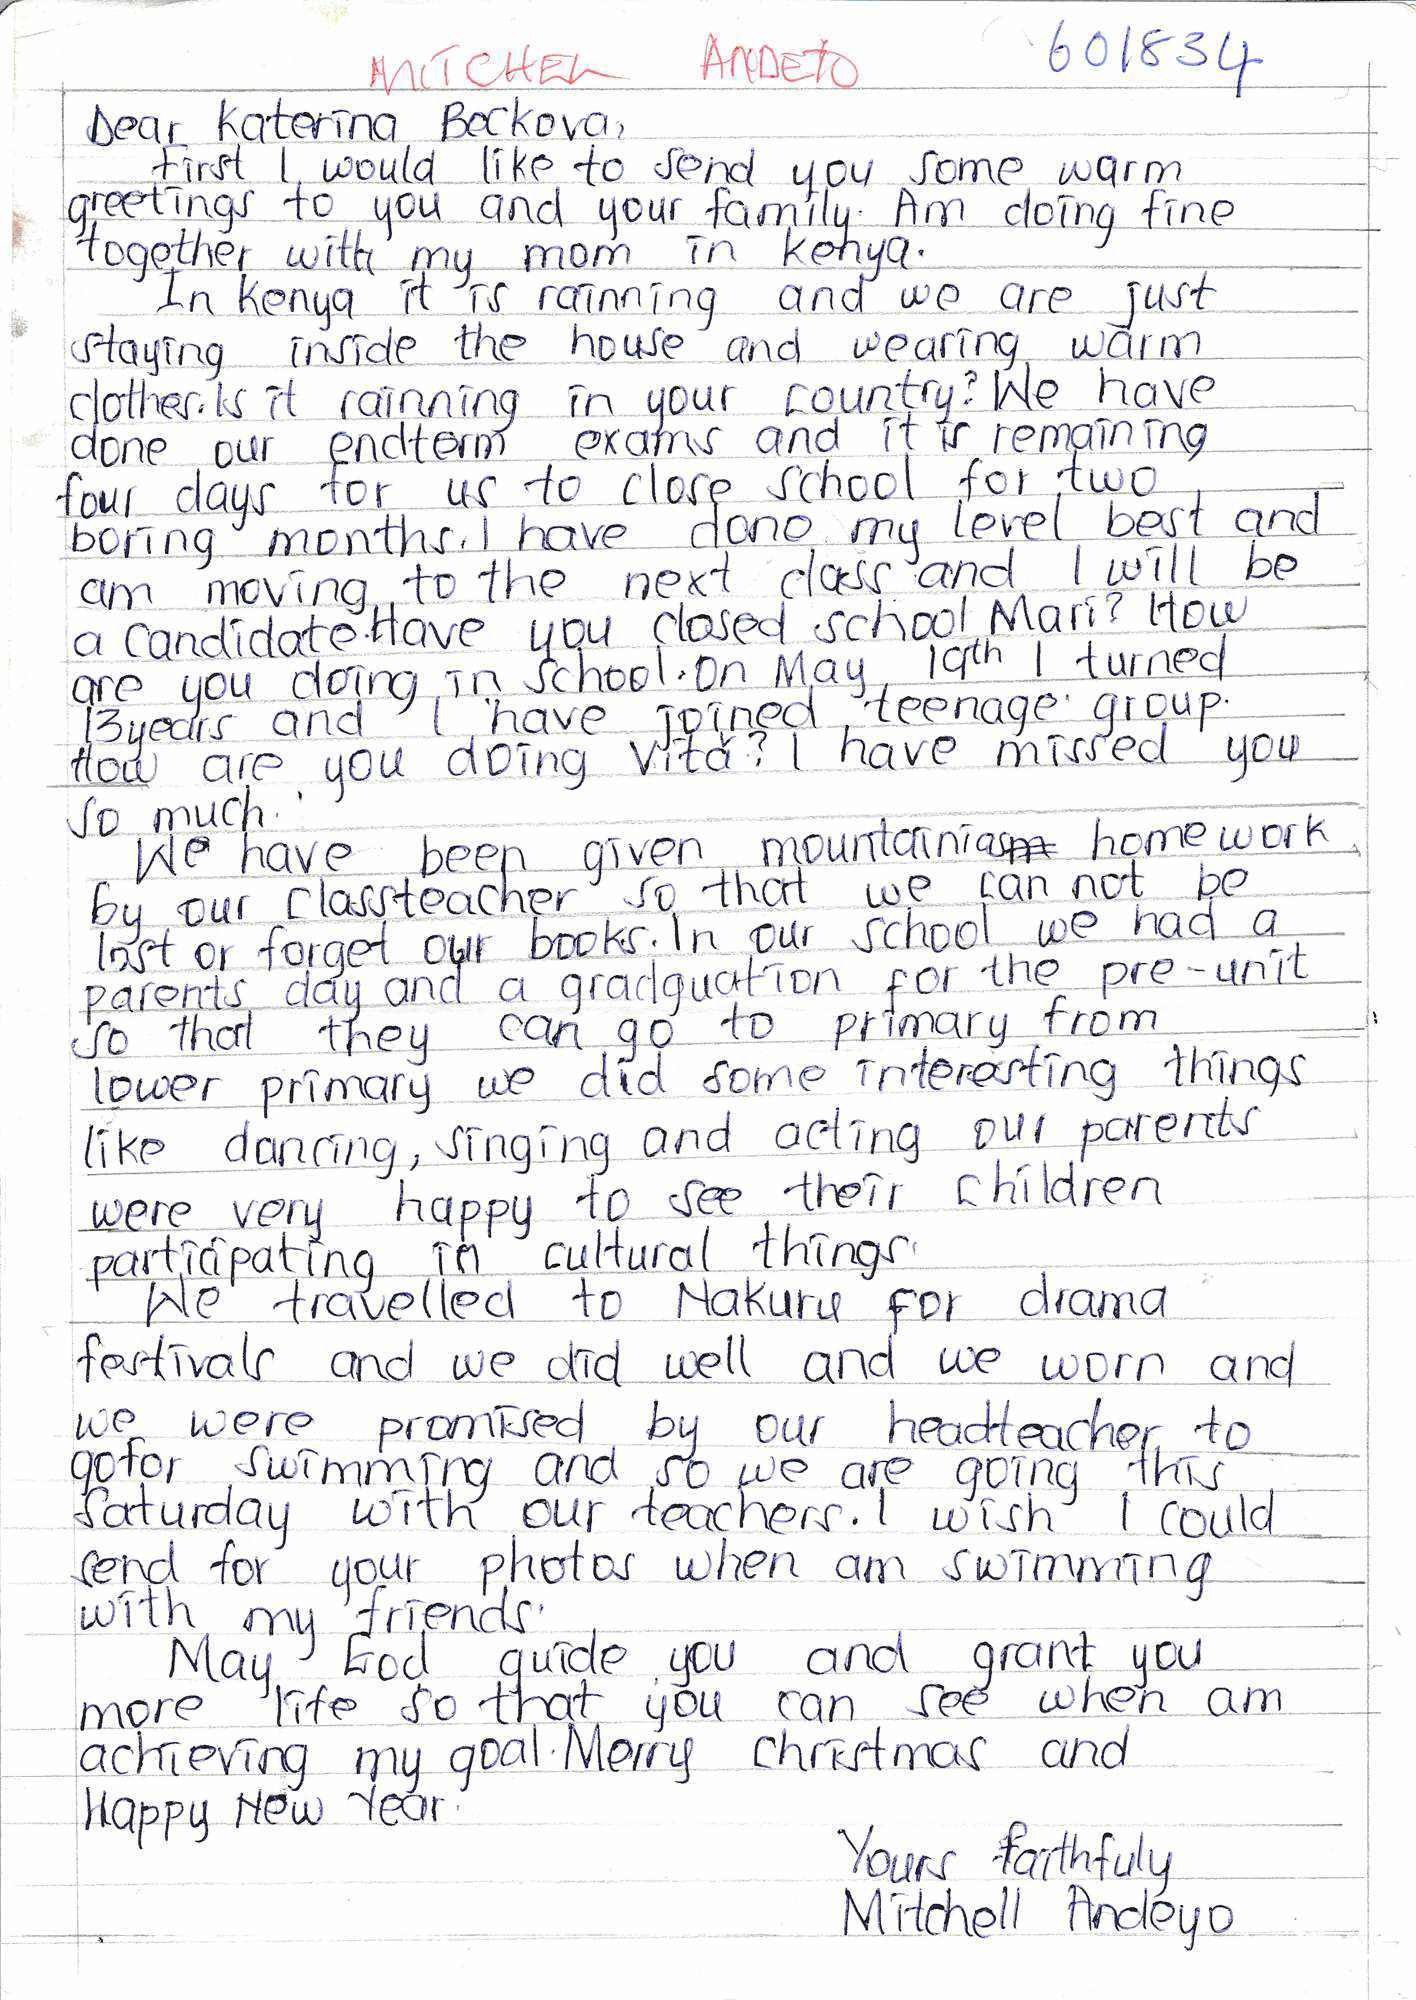 MITCHEL ANDEYO 601834
Dear Katerina Beckova,
First I would like to send you some warm
greetings to you and your family. Am doing fine
together with my mom in Kenya.
In Kenya it is rainning and we are just
staying inside the house and wearing warm
clothes. Is it rainning in your country? We have
done our endterm exams and it is remaining
four days for us to close school for two
boring months. I have done my level best and
am moving to the next class and I will be
a candidate. Have you closed school Mari? How
are you doing in school. On May 19th I turned
13 years and I have joined teenage group.
How are you doing Vita? I have missed you
so much.
We have been given homework
by our classteacher so that we can not be
lost or forget our books. In our school we had a
parents day and a gradguation for the pre-unit
so that they can go to primary from
lower primary we did some interesting things
like dancing, singing and acting our parents
were very happy to see their children
participating in cultural things.
We travelled to Nakuru for drama
festivals and we did well and we worn and
we were promised by our headteacher to
gofor swimming and so we are going this
Saturday with our teachers. I wish I could
send for your photos when am swimming
with my friends.
May God guide you and grant you
more life so that you can see when am
achieving my goal. Merry christmas and
Happy New Year.
Yours faithfuly
Mitchell Andeyo